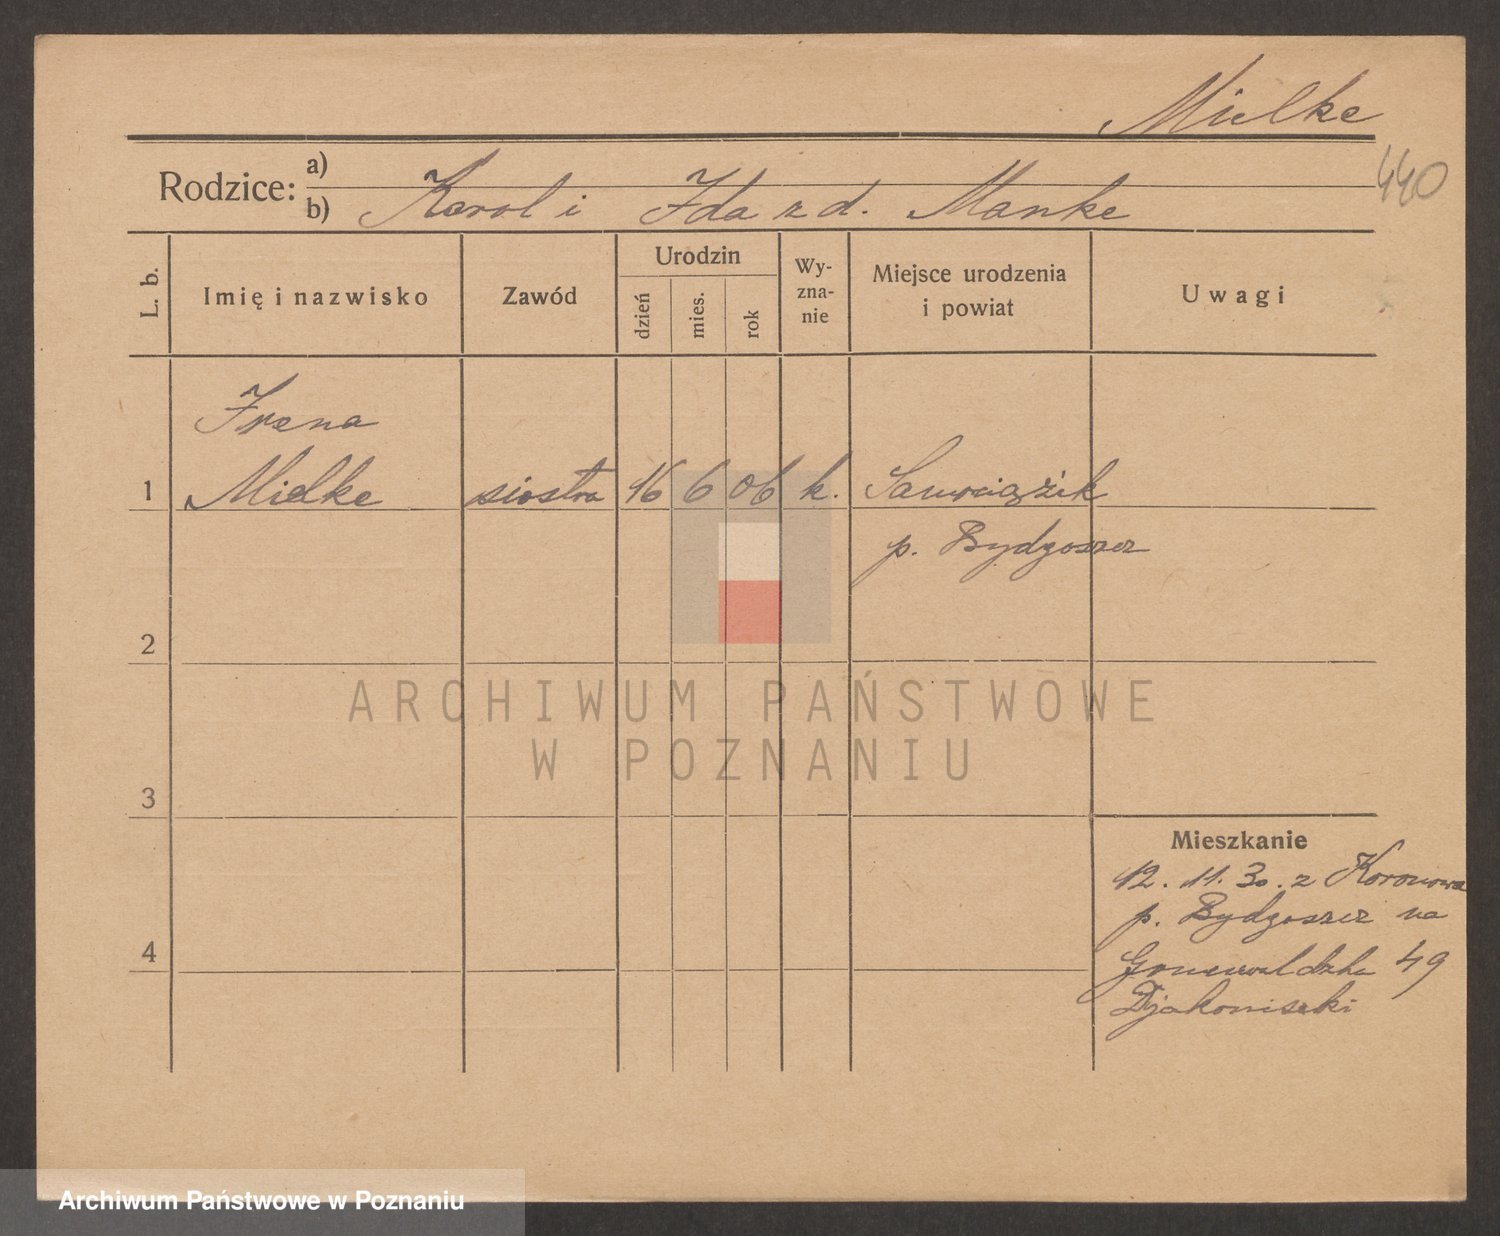 Mielke
440
Rodzice: a)
b) Karol i Ida z d. Manke
L. b.
Imię i nazwisko
Zawód
Urodzin
dzień
mies.
rok
Wy-
zna-
nie
Miejsce urodzenia
i powiat
Uwagi
Irena
1 Mielke siostra 16 6 06 k.
p. Bydgoszcz
2
3
4
Mieszkanie
12. 11. 30. z Koronowa
p. Bydgoszcz na
49
ARCHIWUM PAŃSTWOWE
W POZNANIU
Archiwum Państwowe w Poznaniu